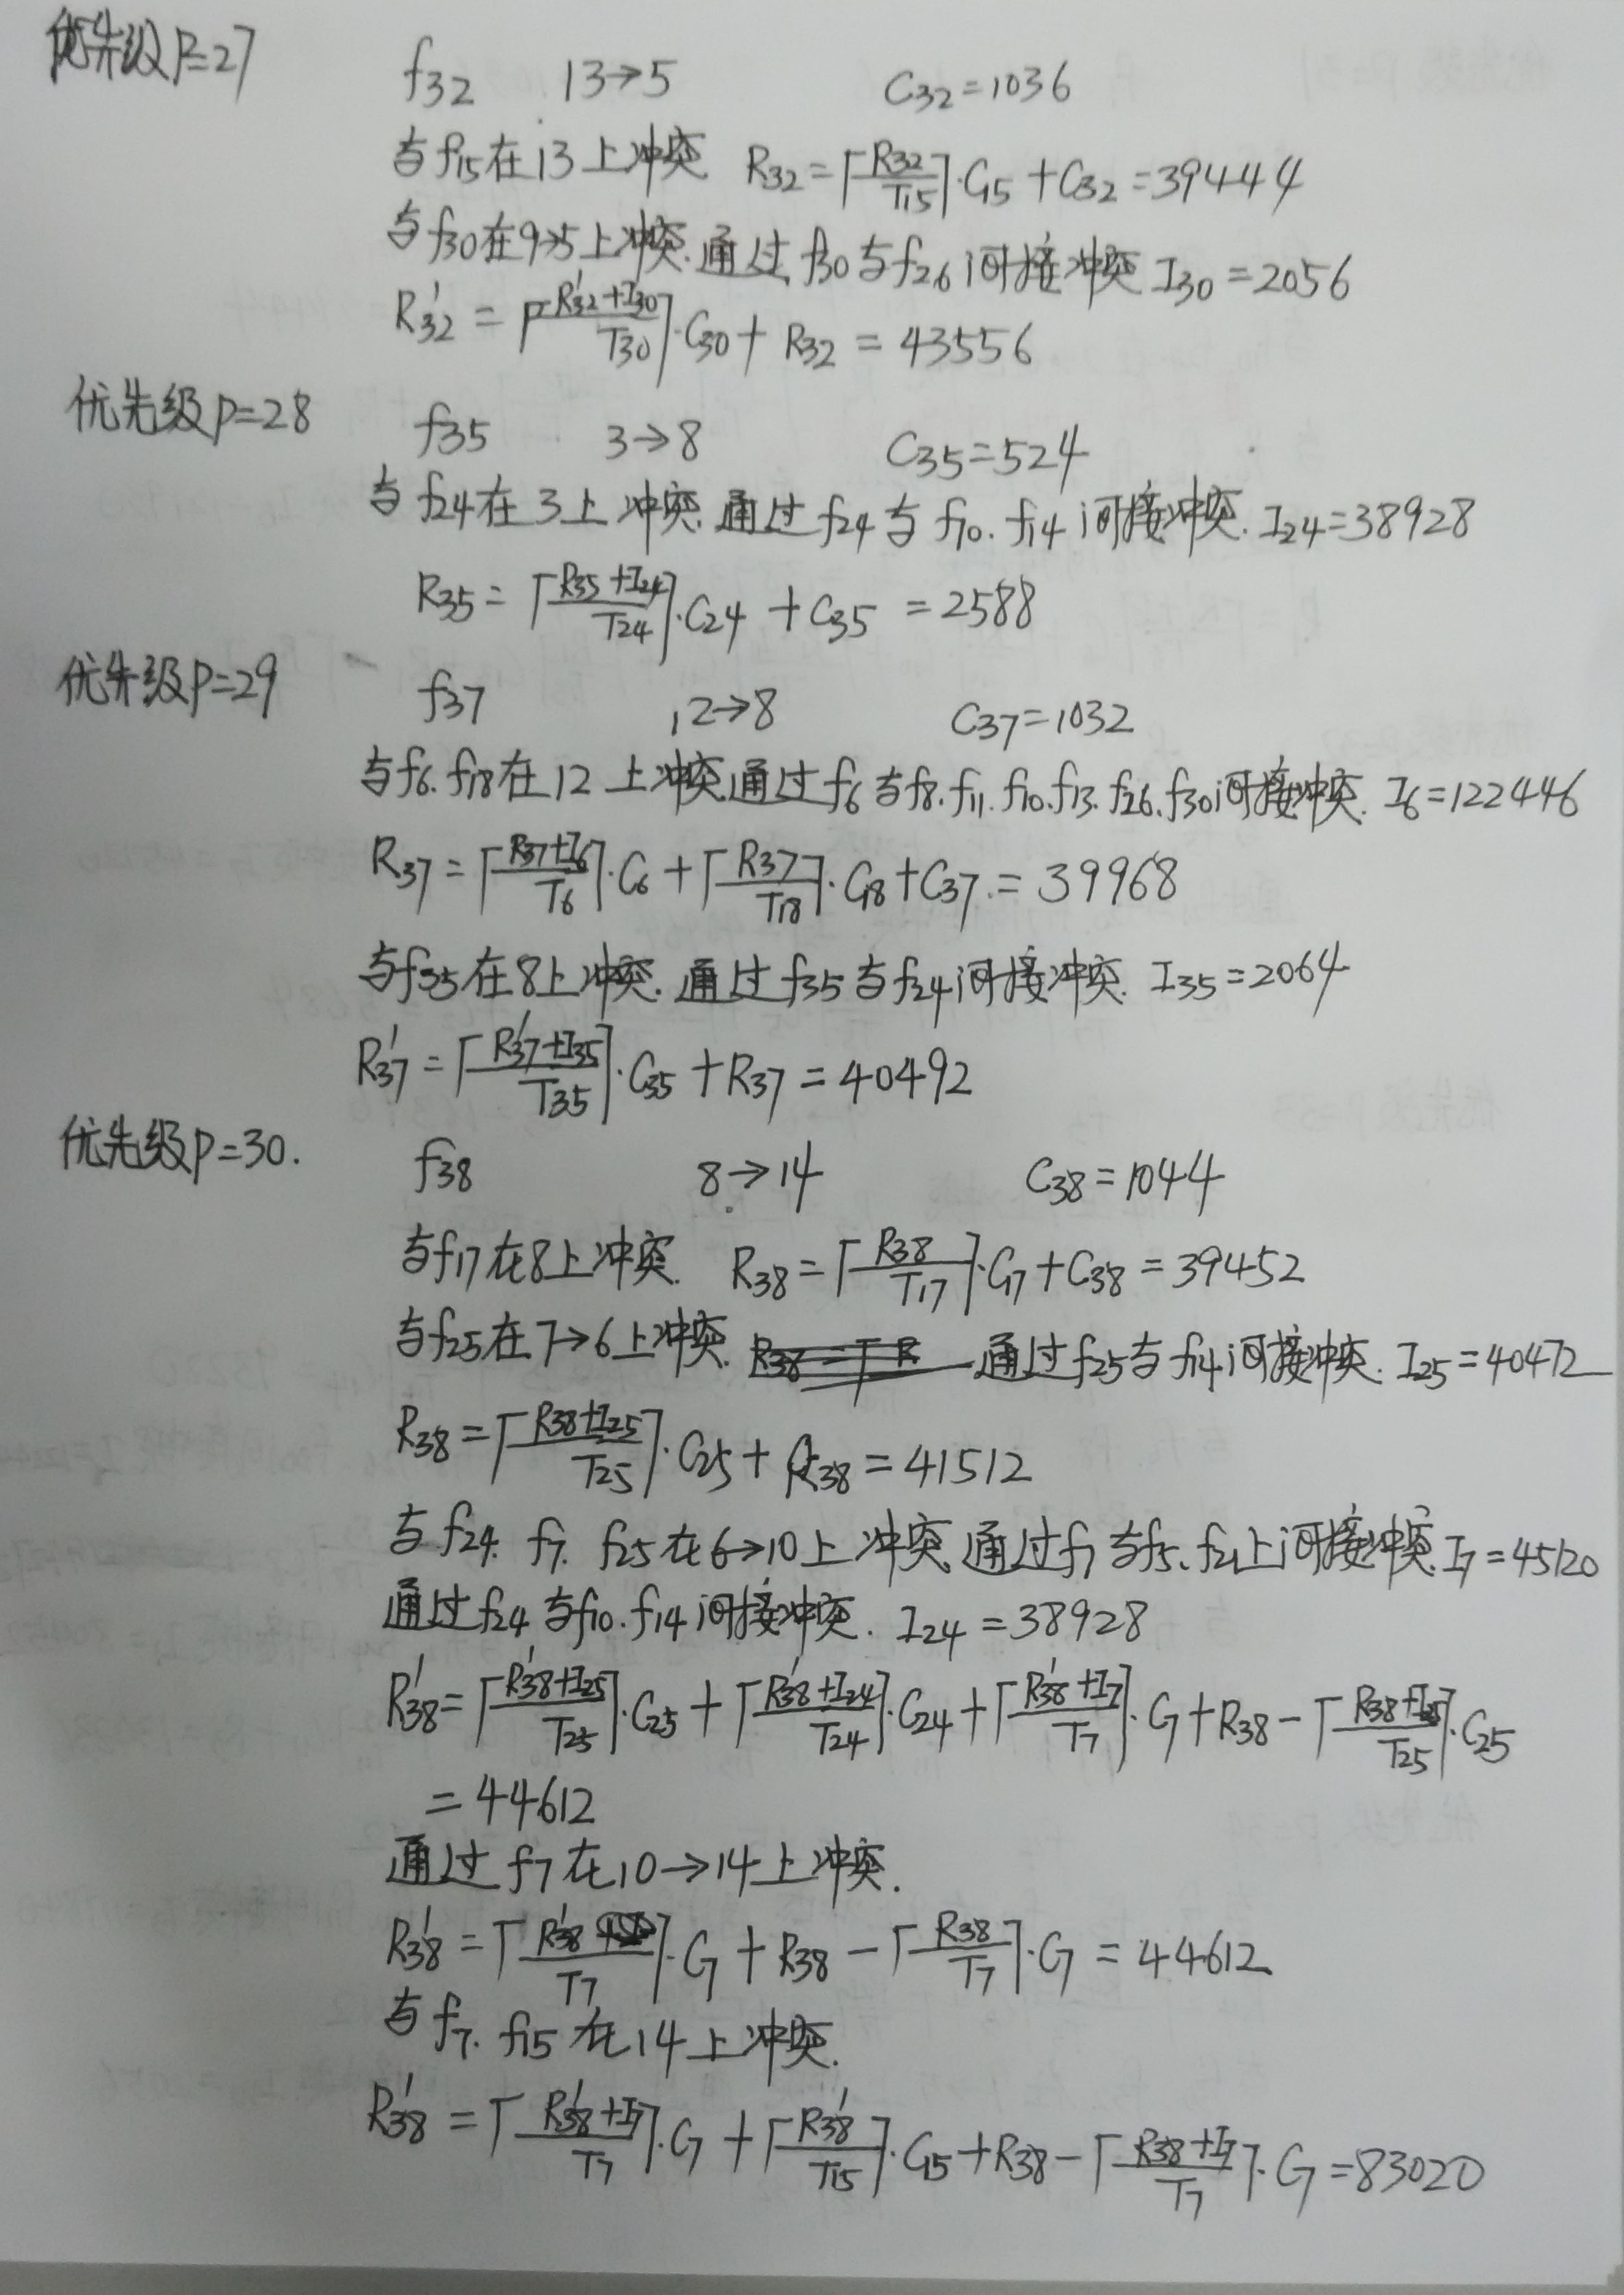 优先级P=27
f32 13→5 C32=1036
与f15在13上冲突 R32=⌈R32/T15⌉·C15+C32=39444
与f30在9→5上冲突.通过f30与f26间接冲突 I30=2056
R'32=⌈(R'32+I30)/T30⌉·C30+R32=43556
优先级P=28
f35 3→8 C35=524
与f24在3上冲突.通过f24与f10.f14间接冲突.I24=38928
R35=⌈(R35+I24)/T24⌉·C24+C35=2588
优先级P=29
f37 12→8 C37=1032
与f6.f18在12上冲突.通过f6与f8.f11.f10.f13.f26.f30间接冲突.I6=122446
R37=⌈(R37+I6)/T6⌉·C6+⌈R37/T18⌉·C18+C37.=39968
与f35在8上冲突.通过f35与f24间接冲突.I35=2064
R'37=⌈(R'37+I35)/T35⌉·C35+R37=40492
优先级P=30.
f38 8→14 C38=1044
与f17在8上冲突.R38=⌈R38/T17⌉·C17+C38=39452
与f25在7→6上冲突.通过f25与f14间接冲突.I25=40472
R38=⌈(R38+I25)/T25⌉·C25+R38=41512
与f24.f7.f25在6→10上冲突.通过f7与f5.f21上间接冲突.I7=45120
通过f24与f10.f14间接冲突.I24=38928
R'38=⌈(R'38+I25)/T25⌉·C25+⌈(R'38+I24)/T24⌉·C24+⌈(R'38+I7)/T7⌉·C7+R38-⌈(R38+I25)/T25⌉·C25
=44612
通过f7在10→14上冲突.
R'38=⌈R'38/T7⌉·C7+R38-⌈R38/T7⌉·C7=44612
与f7.f15在14上冲突.
R'38=⌈(R'38+I7)/T7⌉·C7+⌈R'38/T15⌉·C15+R38-⌈(R38+I7)/T7⌉·C7=83020